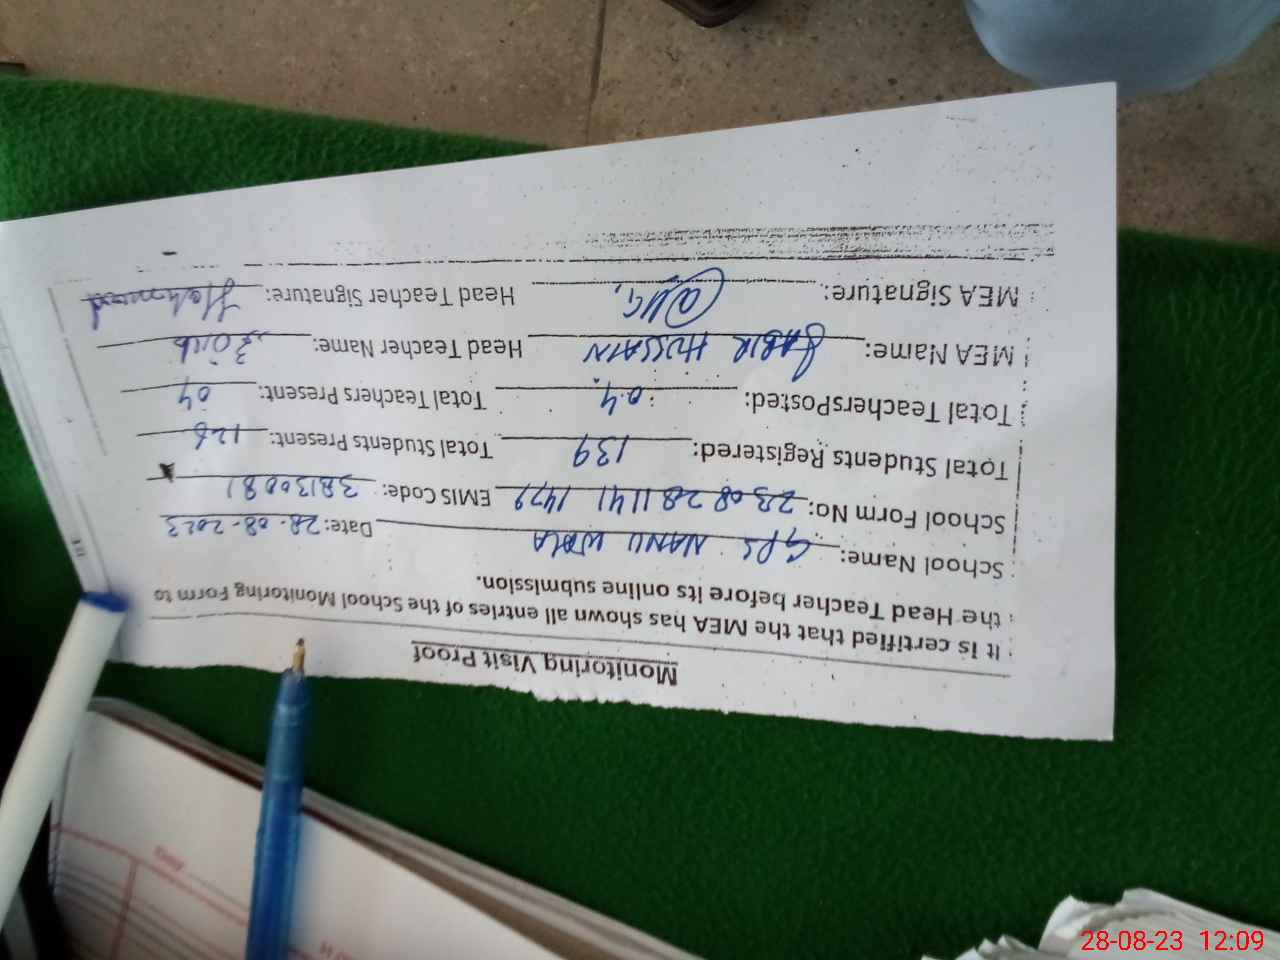 Monitoring Visit Proof
It is certified that the MEA has shown all entries of the School Monitoring Form to
the Head Teacher before its online submission.
School Name: GPS NANU WALA Date: 28-08-2023
School Form No: 23 08 28 1141 1479 EMIS Code: 38130081
Total Students Registered: 139 Total Students Present: 126
Total TeachersPosted: 04 Total Teachers Present: 04
MEA Name: SABIR HUSSAIN Head Teacher Name:
MEA Signature: Head Teacher Signature:
28-08-23 12:09